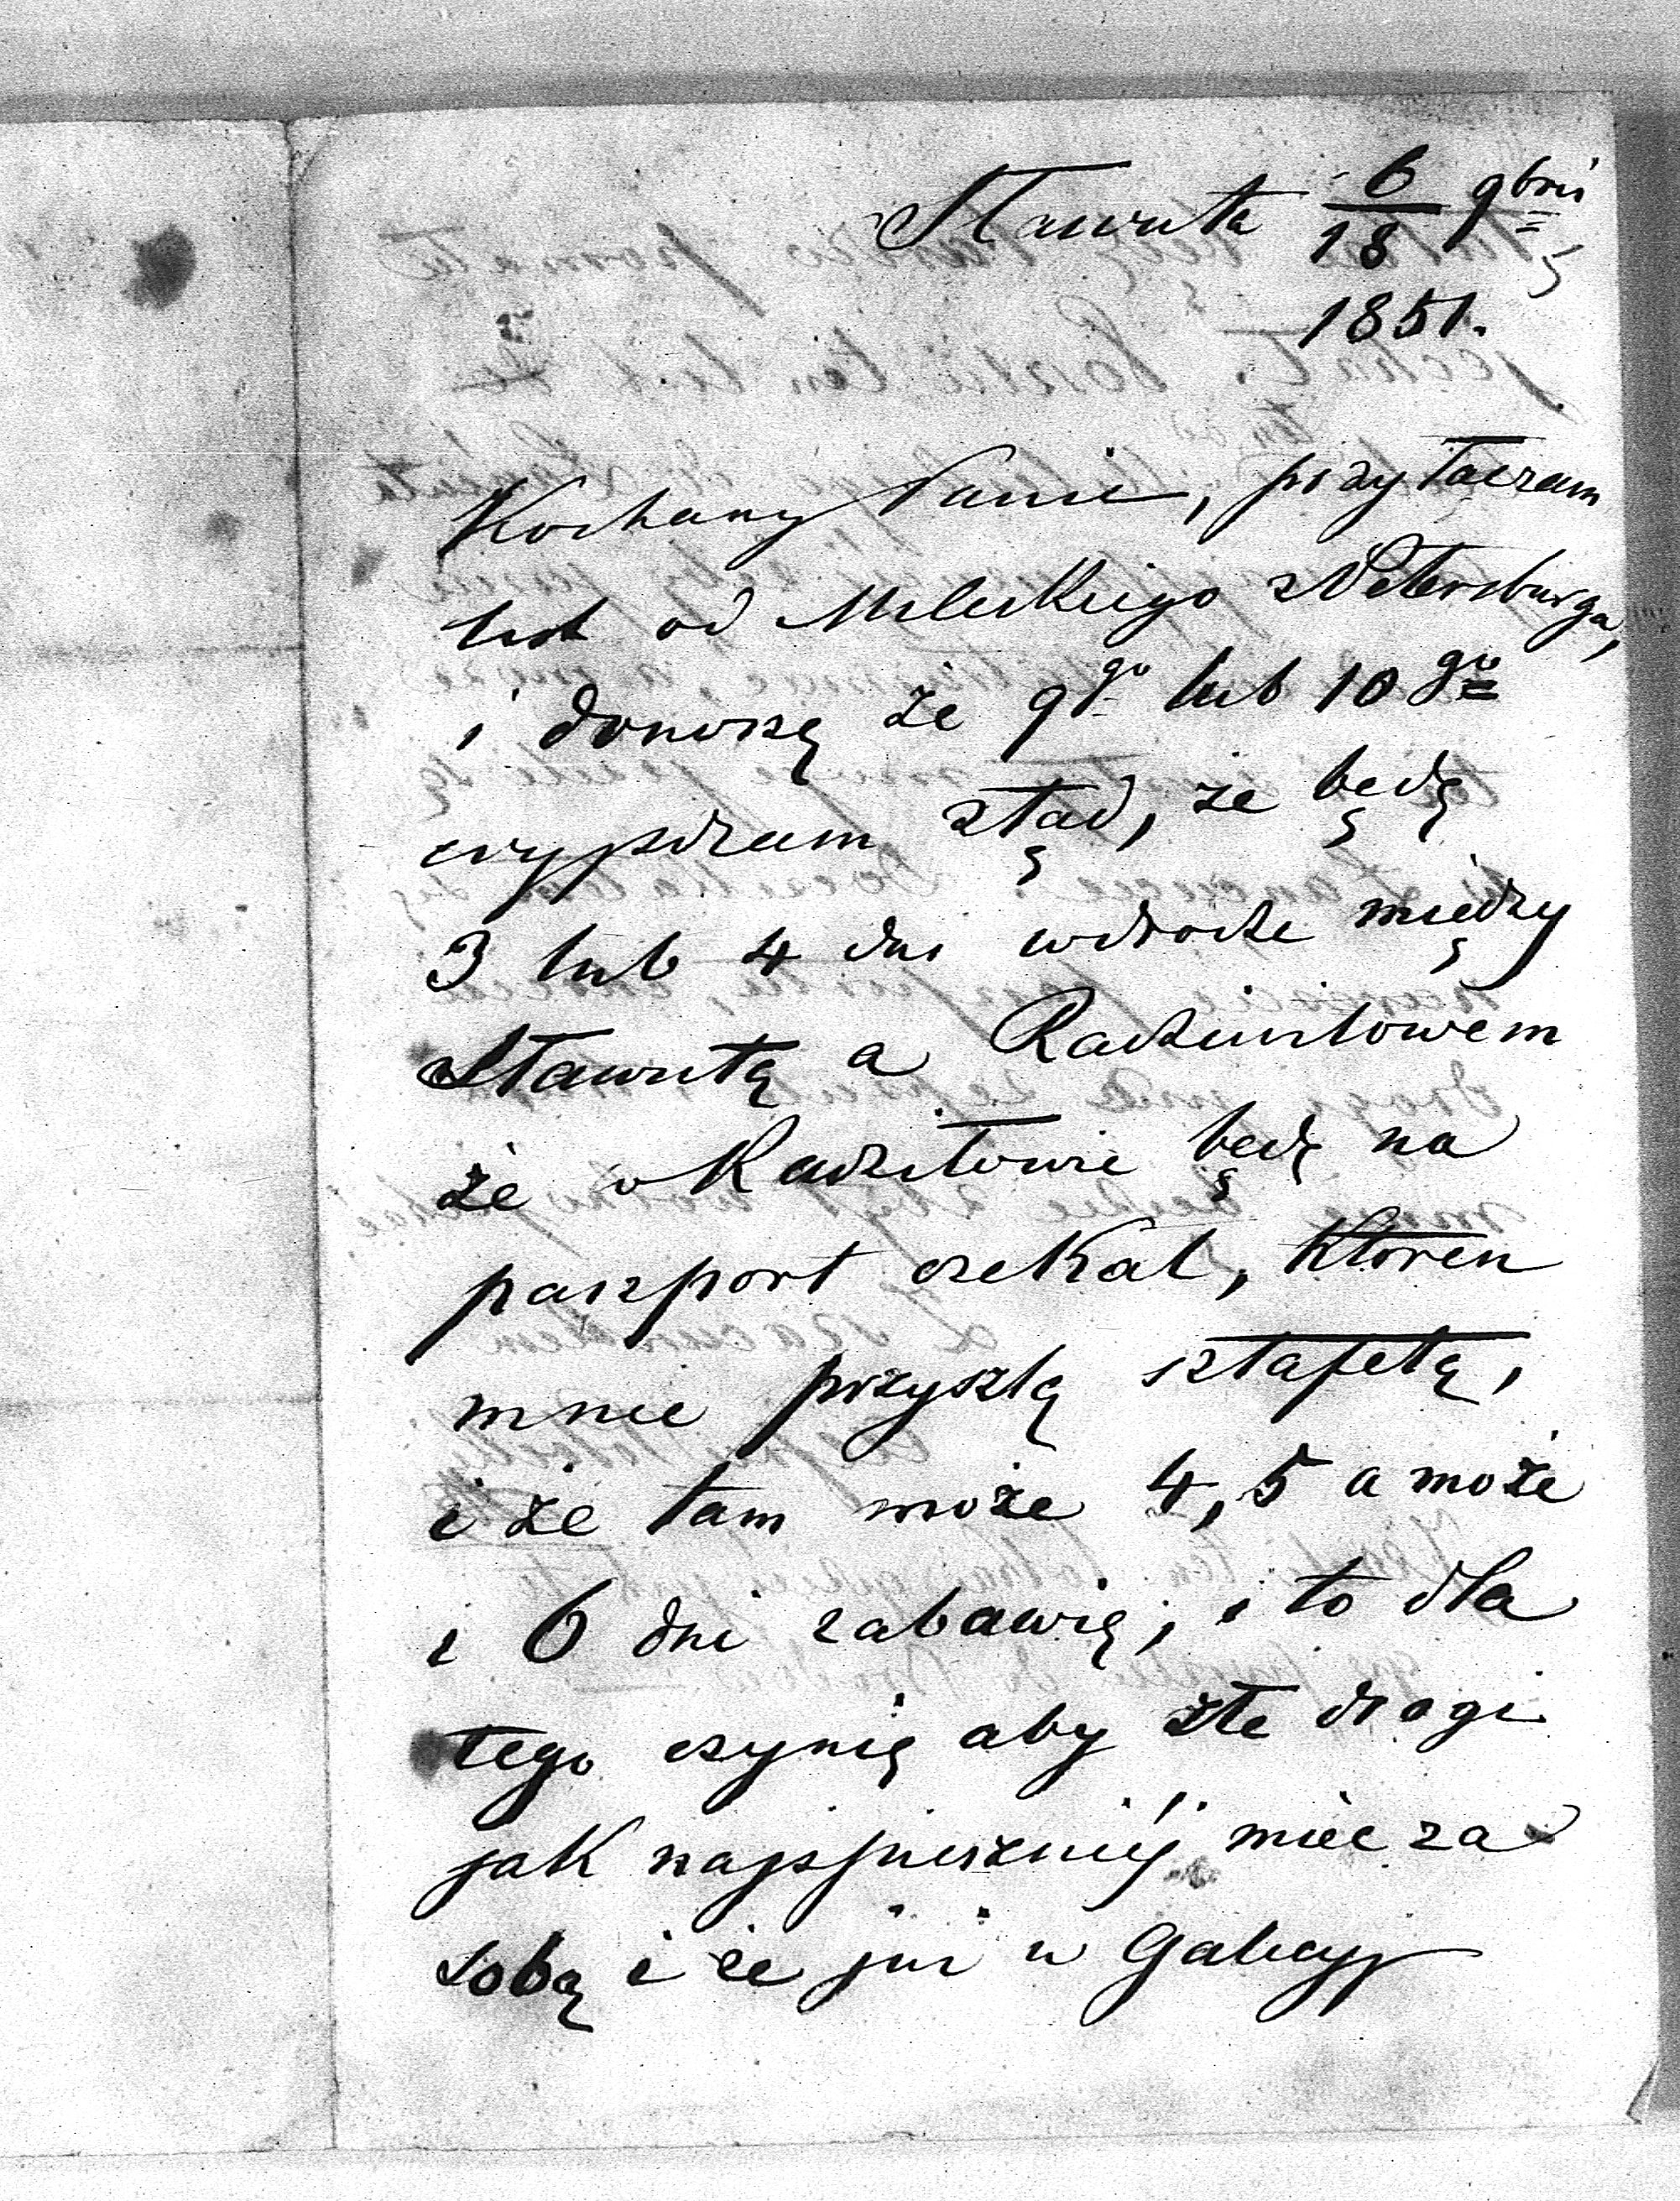 Sławuta 6/18 9bris
1851.
Kochany Panie, przyłączam
list od Mileskiego z Petersburga,
i donoszę że 9go lub 10go
wyjeżdżam ztąd, że będę
3 lub 4 dni w drodze między
Sławutą a Radziwiłowem
że w Radziłowie będę na
paszport czekał, ktoren
mnie przyszlą sztafetą,
i że tam może 4, 5 a może
i 6 dni zabawię; i to dla
tego czynię aby złe drogi
jak najspieszniéj miec za
sobą i że już w Galicyi